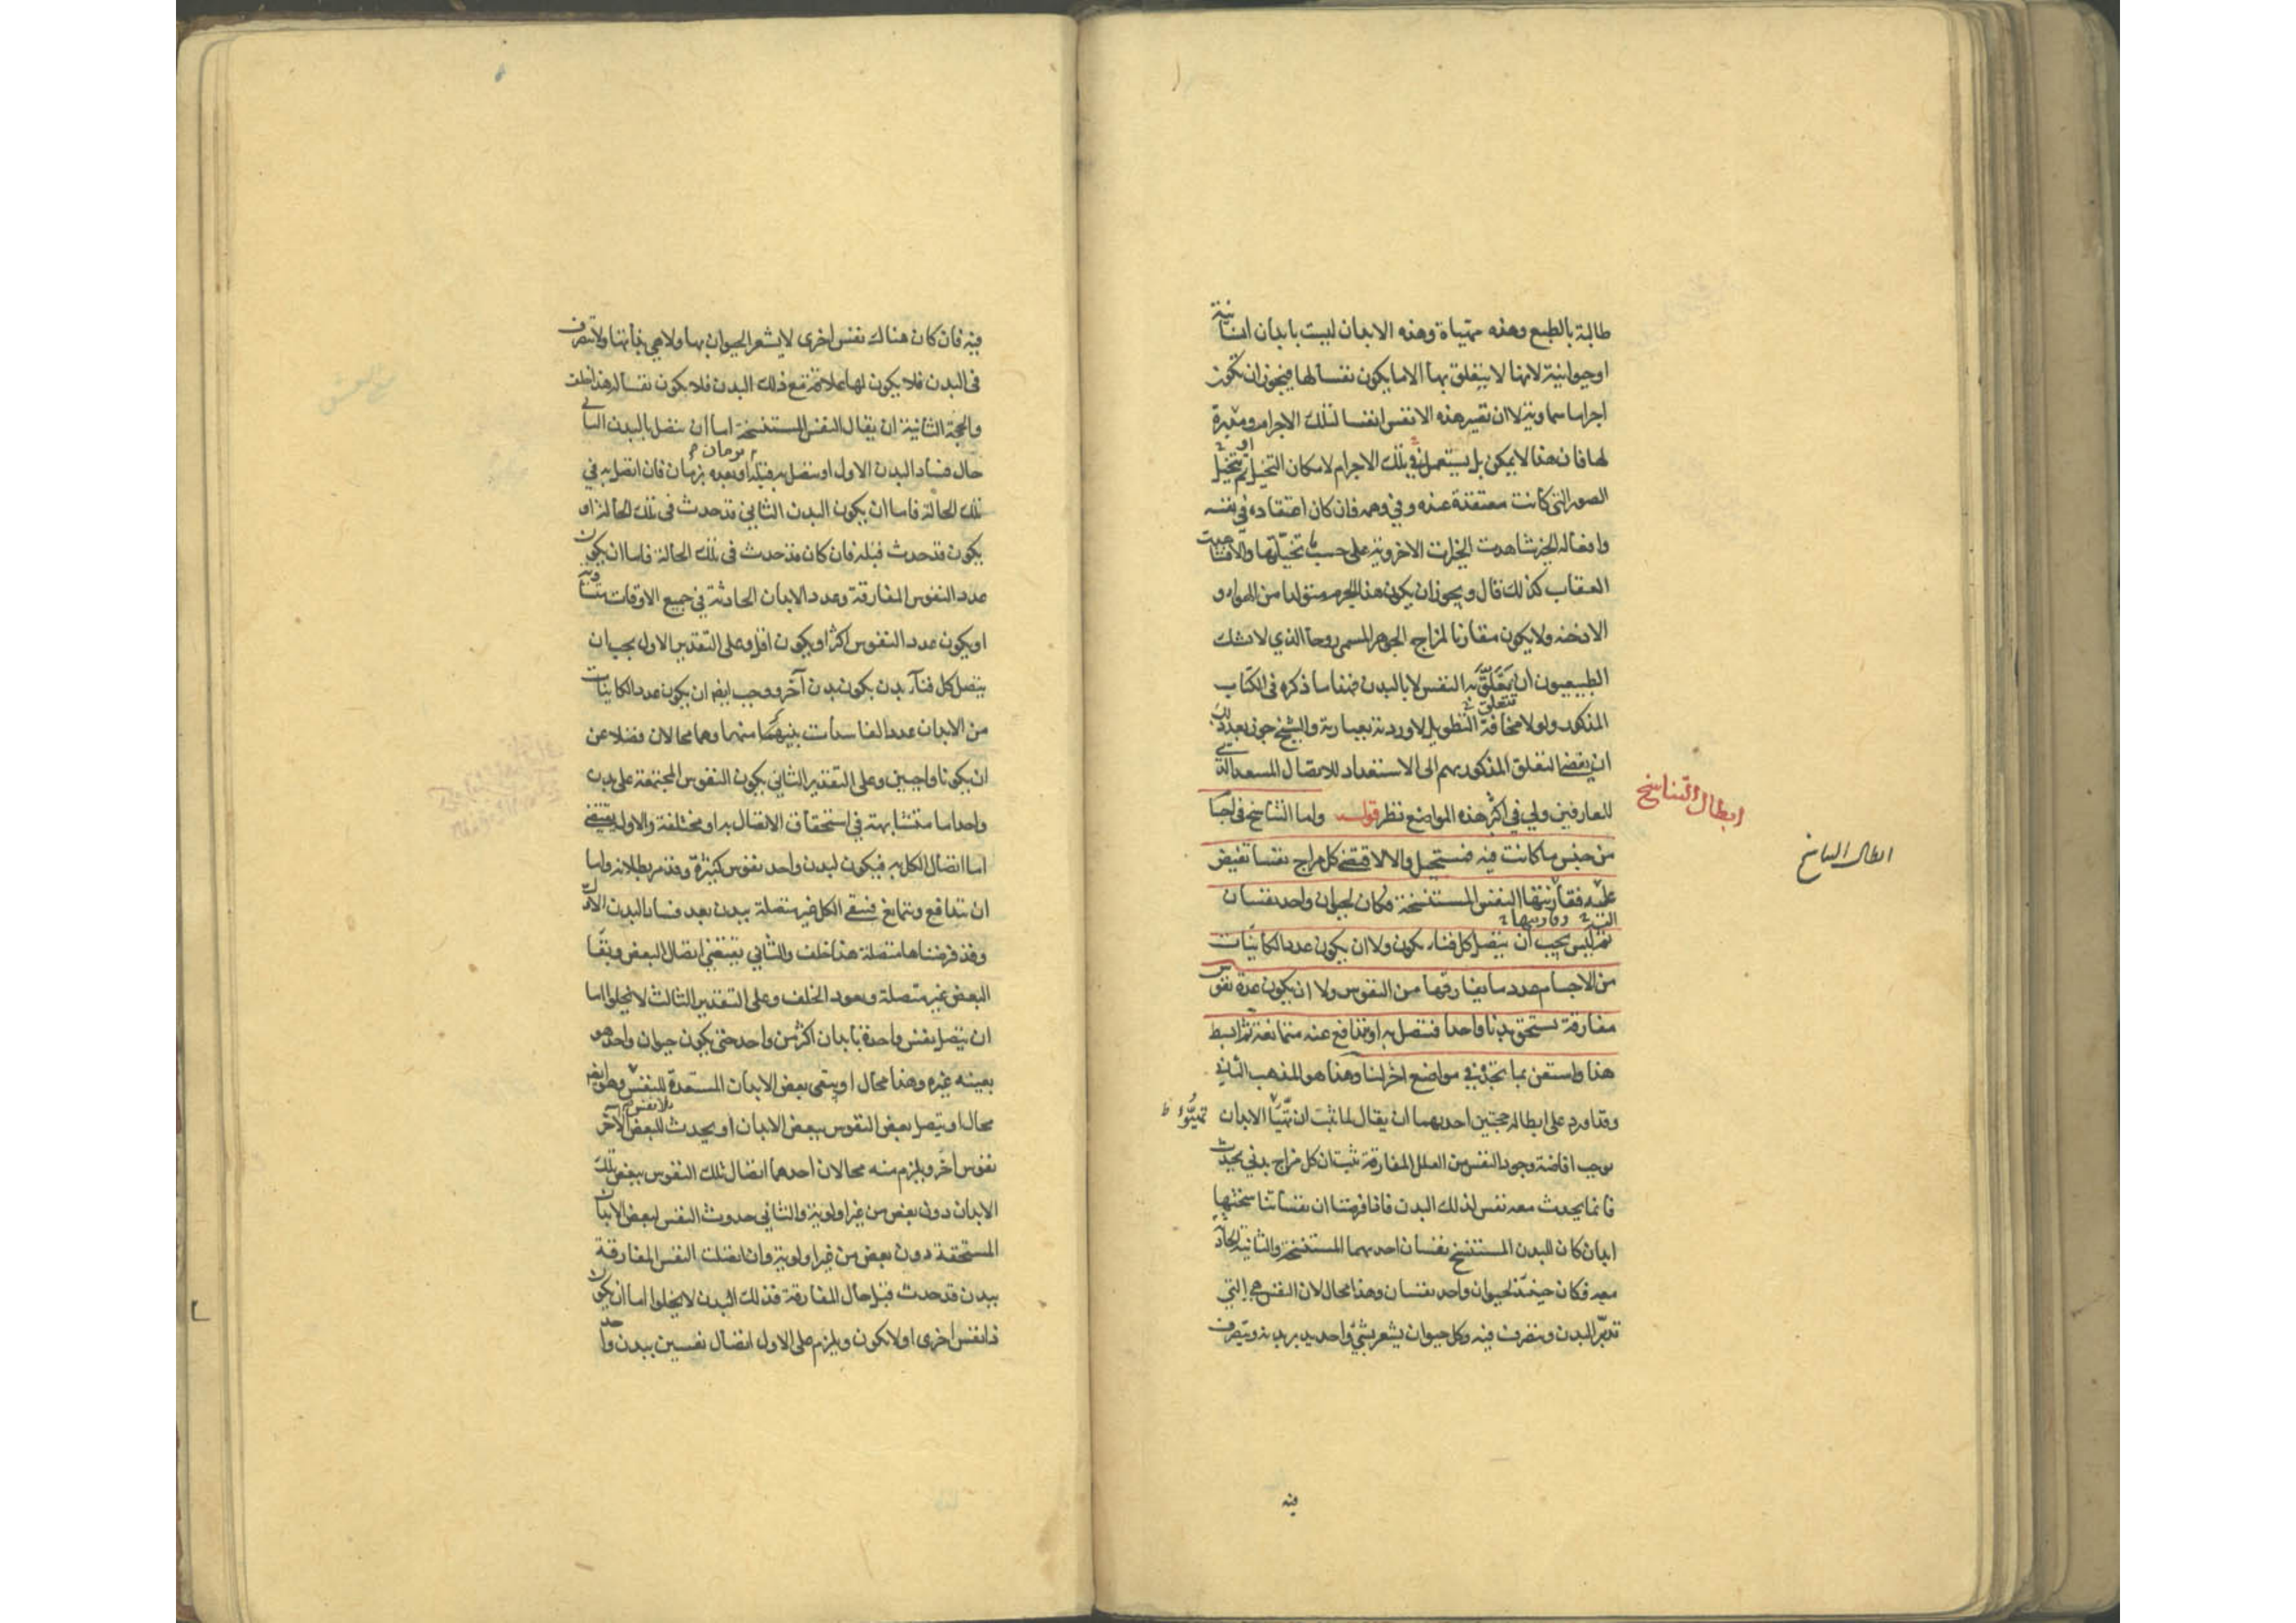 طالبة بالطبع وهذه مهيأة وهذه الابدان ليست بابدان انسانية
او حيوانية لانها لا يتعلق بها الا ما يكون نفسا لها فيجوز ان تكون
اجراما سماوية لا ان تصير هذه الانفس انفسا لتلك الاجرام ومدبرة
لها فان هذا لا يمكن بل يستعمل تلك الاجرام لامكان التخيل ثم يتخيل
الصور التي كانت معتقدة عنده وفي وهمه فان كان اعتقاده في نفسه
وافعاله الخير شاهدت الخيرات الاخروية على حسب ما تخيلتها والا فشاهدت
العقاب كذلك قال ويجوز ان يكون هذا الجرم متولدا من الهواء و
الادخنة ولا يكون مقارنا لمزاج الجوهر المسمى روحا الذي لا يشك
الطبيعيون ان تعلق النفس به لا بالبدن فهذا ما ذكره في الكتاب
المذكور ولولا مخافة التطويل لاوردته بعبارته والشيخ جوز بعد ذلك
ان يفضي التعلق المذكور بهم الى الاستعداد للاتصال المسعد الذي
للعارفين ولي في اكثر هذه المواضع نظر قوله واما التناسخ في اجسام
من جنس ما كانت فيه فمستحيل والا لاقتضى كل مزاج نفسا تفيض
عليه فقارنتها النفس المستنسخة فكان لحيوان واحد نفسان
ثم ليس يجب ان يتصل كل فناء بكون ولا ان يكون عدد الكائنات
من الاجسام عدد ما يفارقها من النفوس ولا ان يكون عدة نفوس
مفارقة يستحق بدنا واحدا فتتصل به او تتدافع عنه متمانعة ثم ابسط
هذا واستعن بما تجده في مواضع اخر لنا وهذا هو المذهب الثاني
وقد اورد على ابطاله حجتين احديهما ان يقال لما ثبت ان تهيأ الابدان
يوجب افاضة وجود النفس من العلل المفارقة ثبت ان كل مزاج بدني يحدث
فانما يحدث معه نفس لذلك البدن فاذا فرضنا ان نفسا تناسختها
ابدان كان للبدن المستنسخ نفسان احديهما المستنسخة والثانية الحادثة
معه فكان حينئذ لحيوان واحد نفسان وهذا محال لان النفس هي التي
تدبر البدن وتتصرف فيه وكل حيوان يشعر بشيء واحد يدبر بدنه ويتصرف
فيه
ابطال التناسخ
ابطال التناسخ
فيه فان كان هناك نفس اخرى لا يشعر الحيوان بها ولا هي بذاتها ولا تتصرف
في البدن فلا يكون لها علاقة مع ذلك البدن فلا يكون نفسا له هذا خلف
والحجة الثانية ان يقال النفس المستنسخة اما ان تتصل بالبدن الثاني
حال فساد البدن الاول او تتصل به قبله او بعده بزمان فان اتصل به في
تلك الحالة فاما ان يكون البدن الثاني قد حدث في تلك الحالة او
يكون قد حدث قبله فان كان قد حدث في تلك الحالة فاما ان يكون
عدد النفوس المفارقة وعدد الابدان الحادثة في جميع الاوقات متساوية
او يكون عدد النفوس اكثر او يكون اقل وعلى التقدير الاول يجب ان
يتصل كل فناء بدن بكون بدن آخر ووجب ايضا ان يكون عدد الكائنات
من الابدان عدد الفاسدات منها وهما محالان فضلا عن
ان يكونا واجبين وعلى التقدير الثاني يكون النفوس المجتمعة على بدن
واحد اما متشابهة في استحقاق الاتصال به او مختلفة والاول يقتضي
اما اتصال الكل به فيكون لبدن واحد نفوس كثيرة وقد مر بطلانه واما
ان تتدافع وتتمانع فيبقى الكل غير متصلة ببدن بعد فساد البدن الاول
وقد فرضناها متصلة هذا خلف والثاني يقتضي اتصال البعض وبقاء
البعض غير متصلة ويعود الخلف وعلى التقدير الثالث لا يخلوا اما
ان يتصل نفس واحدة بابدان اكثر من واحد حتى يكون حيوان واحد هو
بعينه غيره وهذا محال او يبقى بعض الابدان المستعدة للنفس وهو ايضا
محال او يتصل بعض النفوس ببعض الابدان او يحدث للبعض الآخر
نفوس اخر ويلزم منه محالان احدهما اتصال تلك النفوس ببعض تلك
الابدان دون بعض من غير اولوية والثاني حدوث النفس لبعض الابدان
المستحقة دون بعض من غير اولوية وان اتصلت النفس المفارقة
ببدن قد حدث قبل حال المفارقة فذلك البدن لا يخلوا اما ان يكون
ذا نفس اخرى او لا يكون ويلزم على الاول اتصال نفسين ببدن واحد